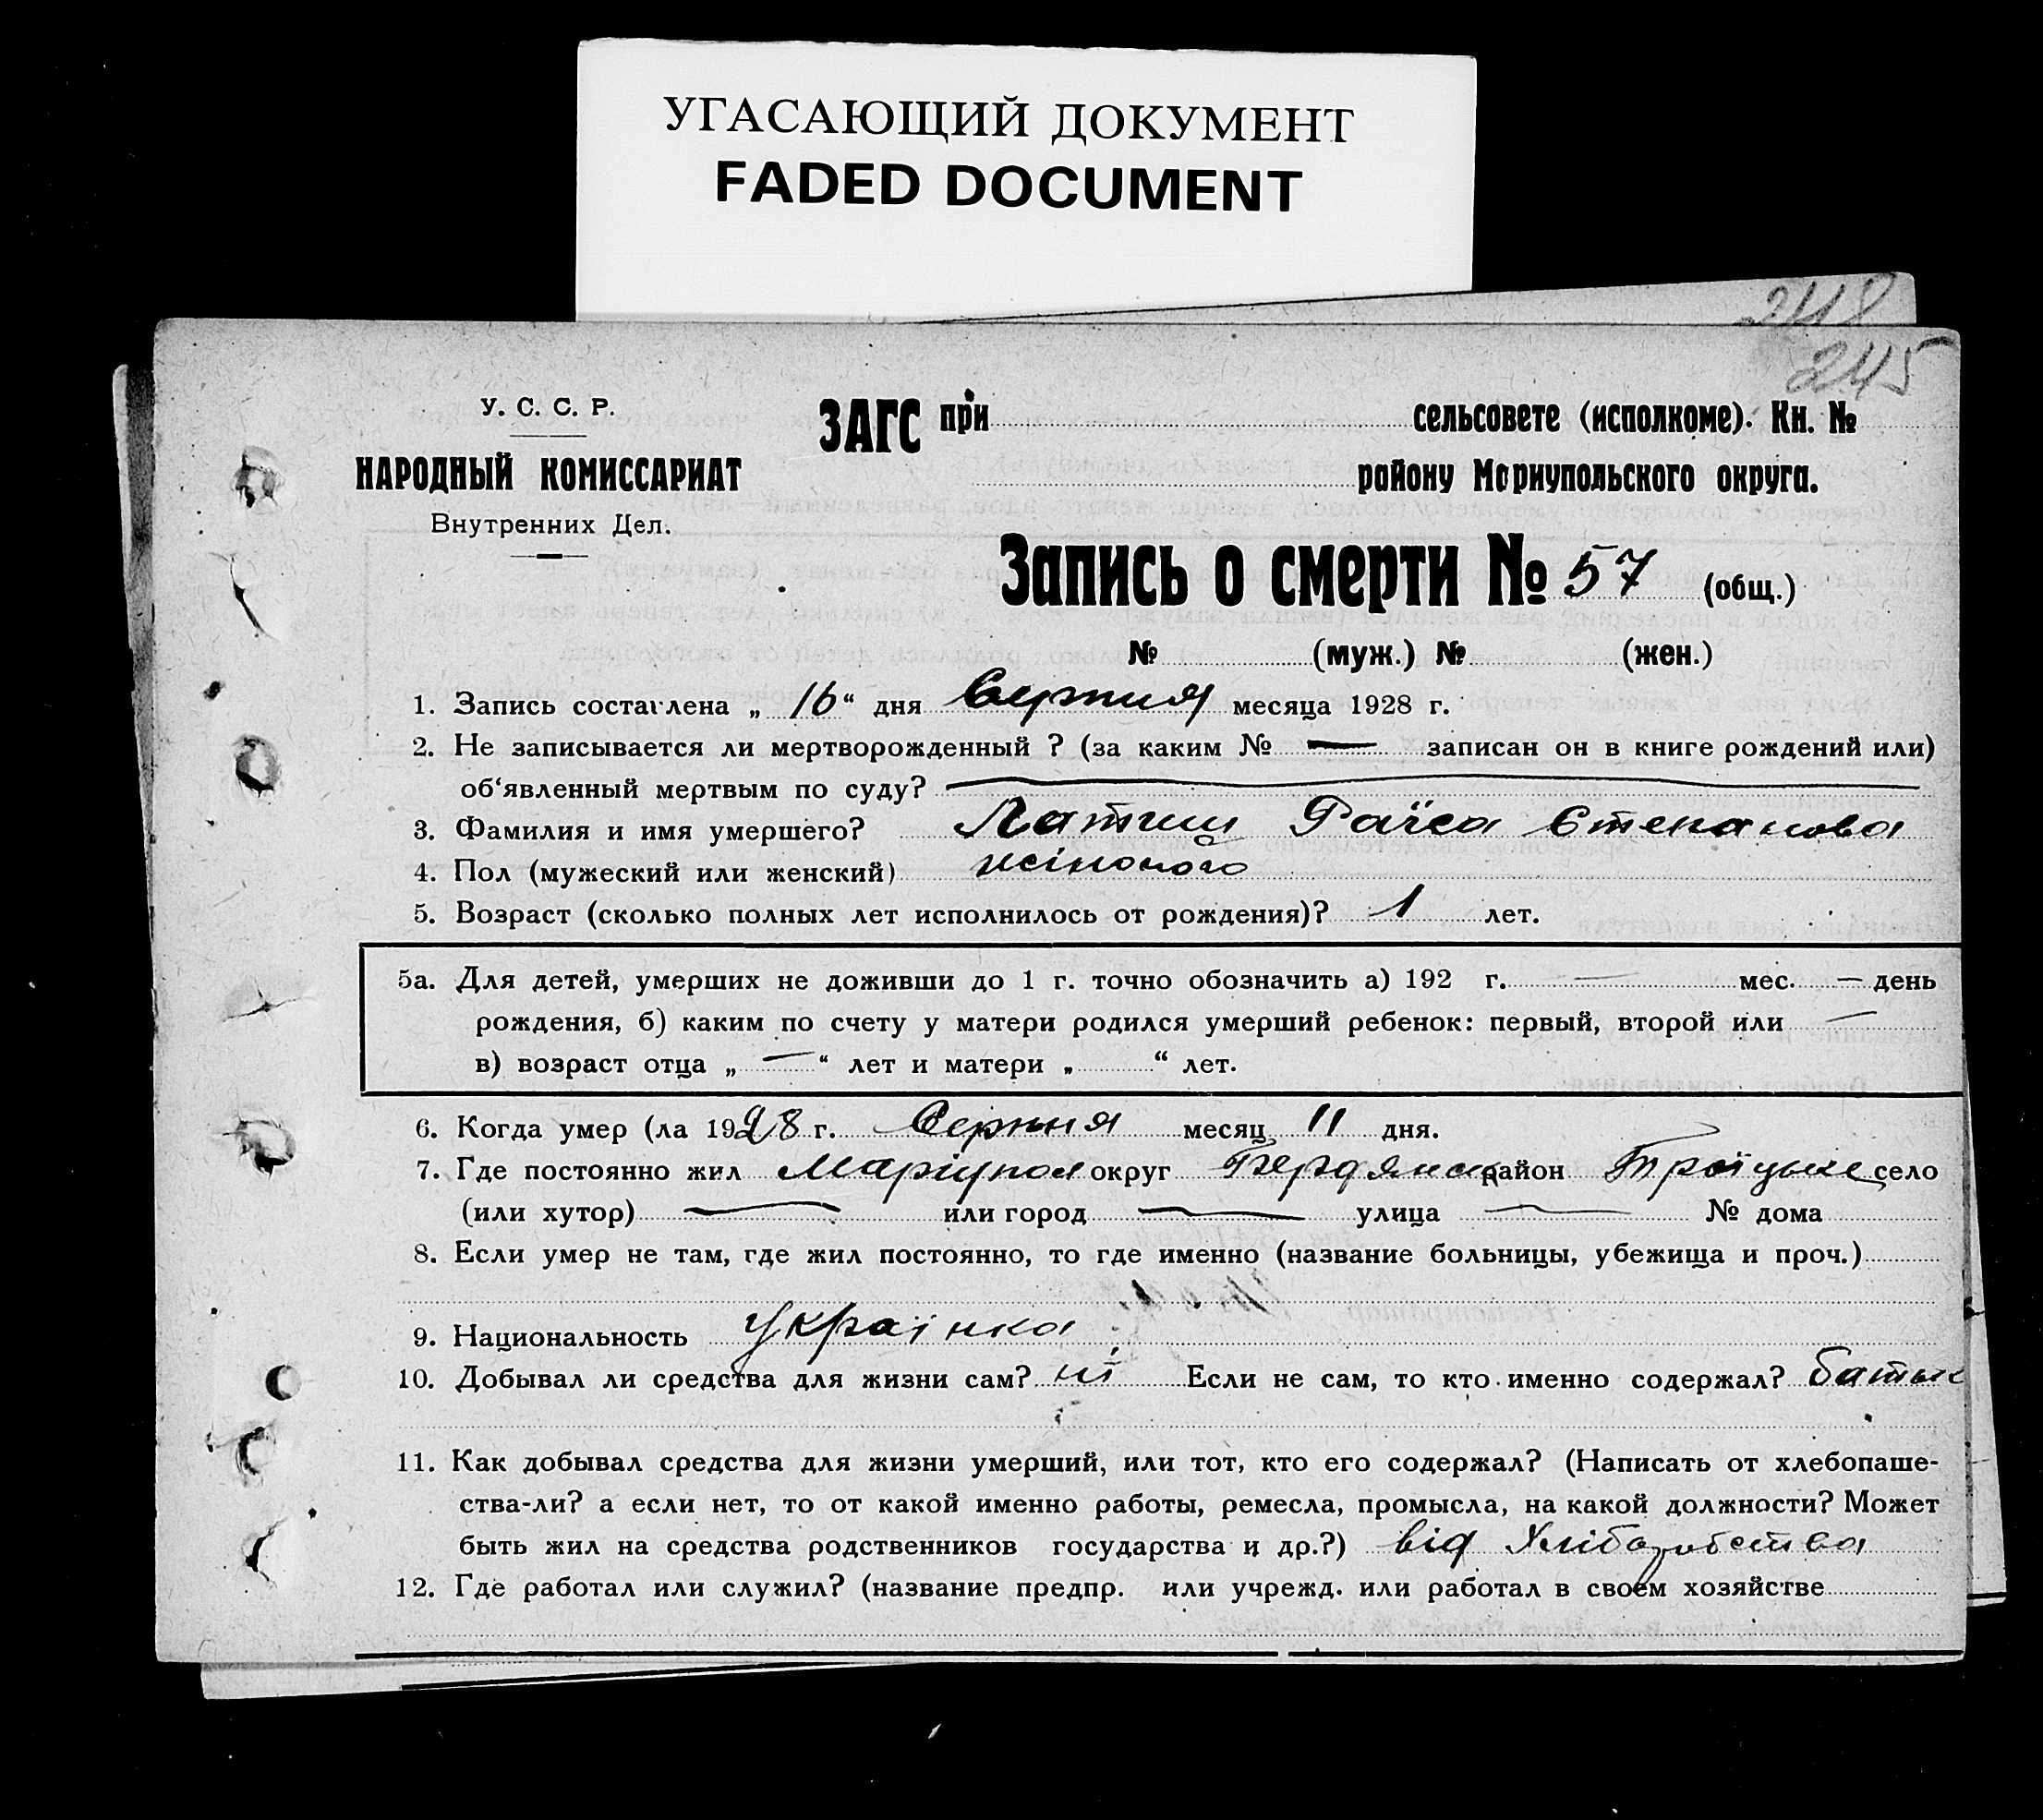 УГАСАЮЩИЙ ДОКУМЕНТ
FADED DOCUMENT
248
245
У. С. С. Р.
НАРОДНЫЙ КОМИССАРИАТ
Внутренних Дел.
ЗАГС при сельсовете (исполкоме). Кн. №
району Мариупольского округа.
Запись о смерти № 57 (общ.)
№ (муж.) № (жен.)
1. Запись составлена „ 16 “ дня Серпня месяца 1928 г.
2. Не записывается ли мертворожденный ? (за каким № — записан он в книге рождений или)
об‘явленный мертвым по суду? —
3. Фамилия и имя умершего? Раїса Степанова
4. Пол (мужеский или женский) жіночого
5. Возраст (сколько полных лет исполнилось от рождения)? 1 лет.
5а. Для детей, умерших не доживши до 1 г. точно обозначить а) 192 г. — мес. — день
рождения, б) каким по счету у матери родился умерший ребенок: первый, второй или —
в) возраст отца „ — “ лет и матери „ “ лет.
6. Когда умер (ла 1928 г. Серпня месяц 11 дня.
7. Где постоянно жил Маріупол округ Бердянск район Троїцьке село
(или хутор) — или город — улица — № дома
8. Если умер не там, где жил постоянно, то где именно (название больницы, убежища и проч.)
9. Национальность Українка
10. Добывал ли средства для жизни сам? ні Если не сам, то кто именно содержал? батьк
11. Как добывал средства для жизни умерший, или тот, кто его содержал? (Написать от хлебопаше-
ства-ли? а если нет, то от какой именно работы, ремесла, промысла, на какой должности? Может
быть жил на средства родственников государства и др.?) від Хліборобства
12. Где работал или служил? (название предпр. или учрежд. или работал в своем хозяйстве